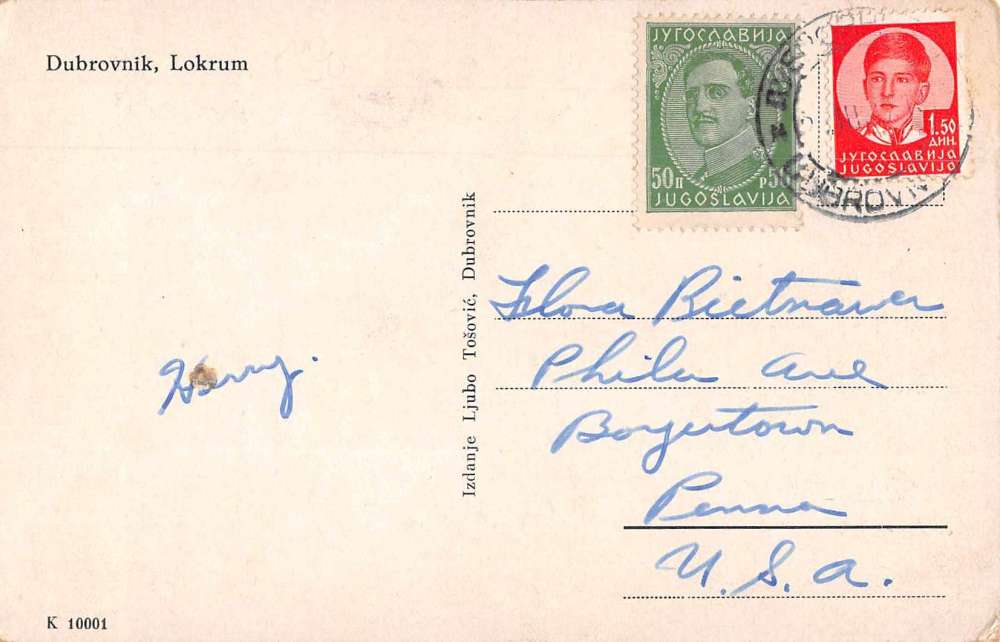 Dubrovnik, Lokrum
ЈУГОСЛАВИЈА
50п p50
JUGOSLAVIJA
1.50
ДИН.
ЈУГОСЛАВИЈА
JUGOSLAVIJO
Izdanje Ljubo Tošović, Dubrovnik
Harry.
Flora Bietnawer
Phila Ave
Boyertown
Penna
U.S.A.
K 10001